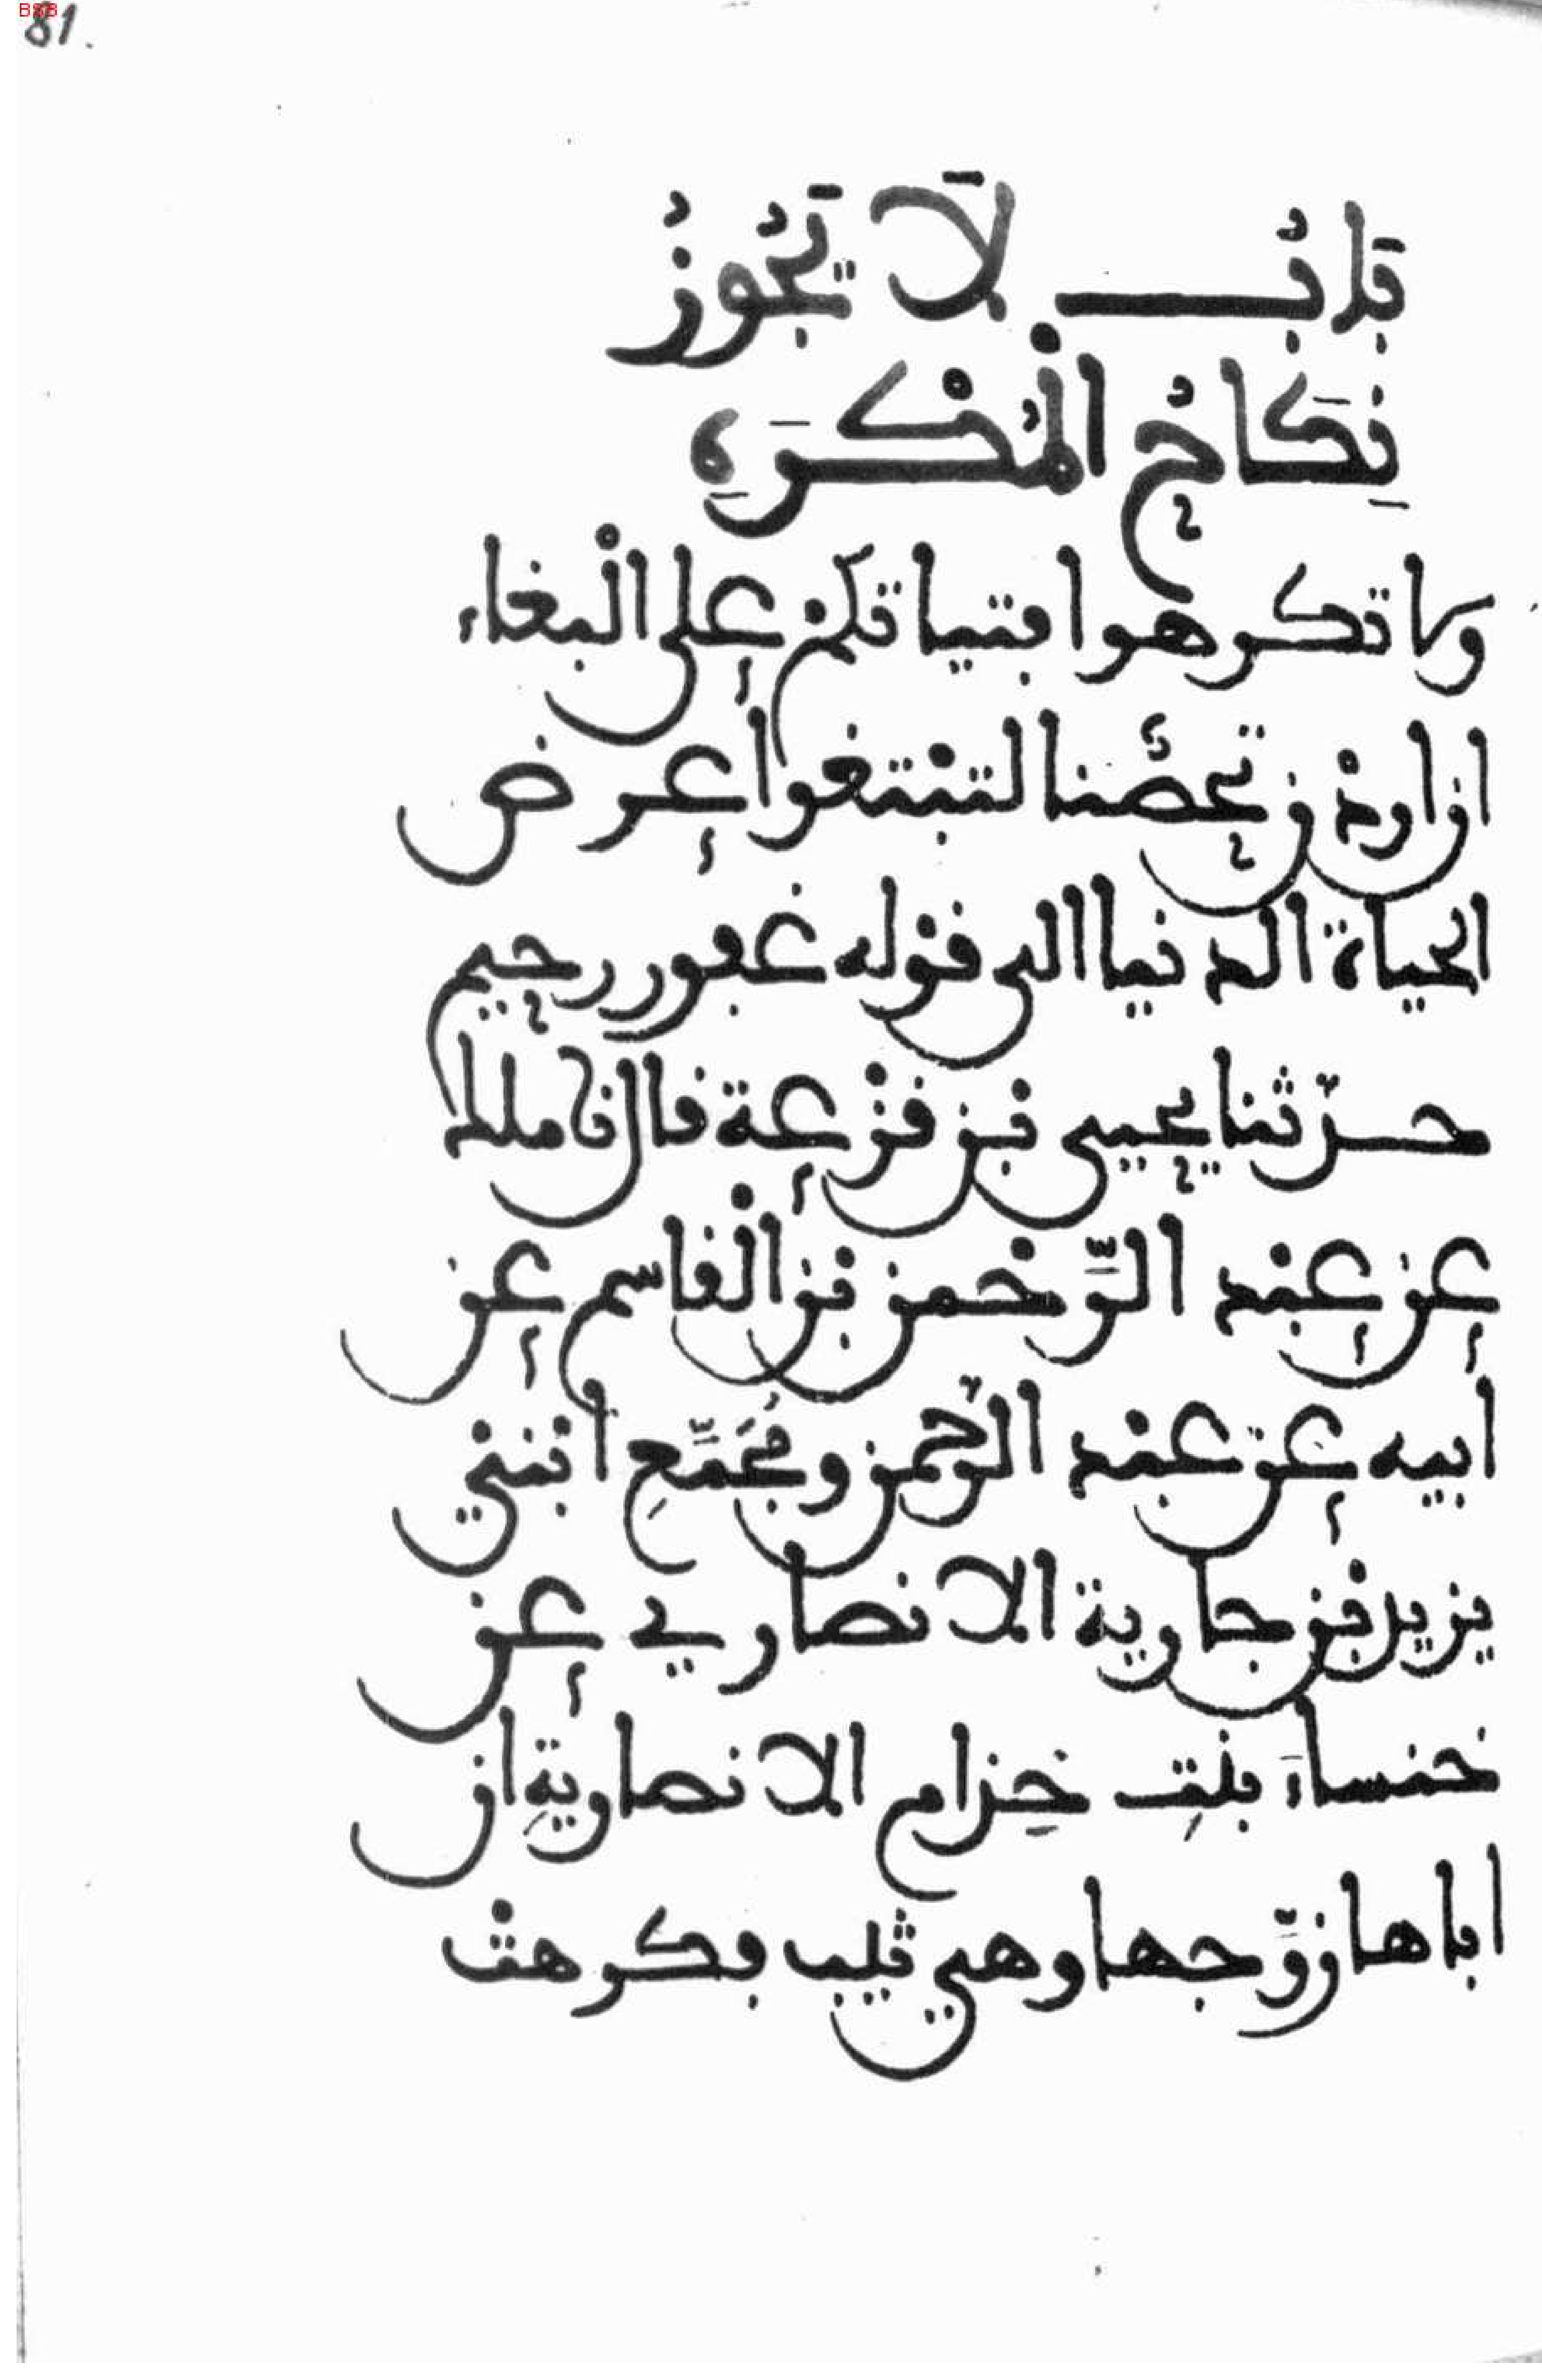 BSB
81.
بَابٌ لَا يَجُوزُ
نِكَاحُ الْمُكْرَهِ
ولا تكرهوا فتياتكم على البغاء
ان اردن تحصّنا لتبتغوا عرض
الحياة الدنيا الى قوله غفور رحيم
حدّثنا يحيى بن قزعة قال نا ملك
عن عبد الرَّحمن بن القاسم عن
ابيه عن عبد الرّحمن ومُجَمِّعِ ابني
يزيد بن جارية الانصاري عن
خنساءَ بنتِ خِزام الانصاريةِ ان
اباها زوَّجها وهي ثيب فكرهت